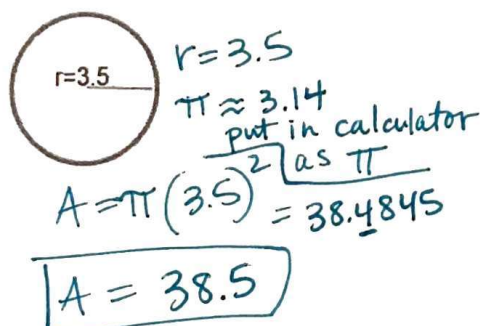 r=3.5
r=3.5
π≈3.14
put in calculator
as π
A=π(3.5)²
= 38.4845
A = 38.5